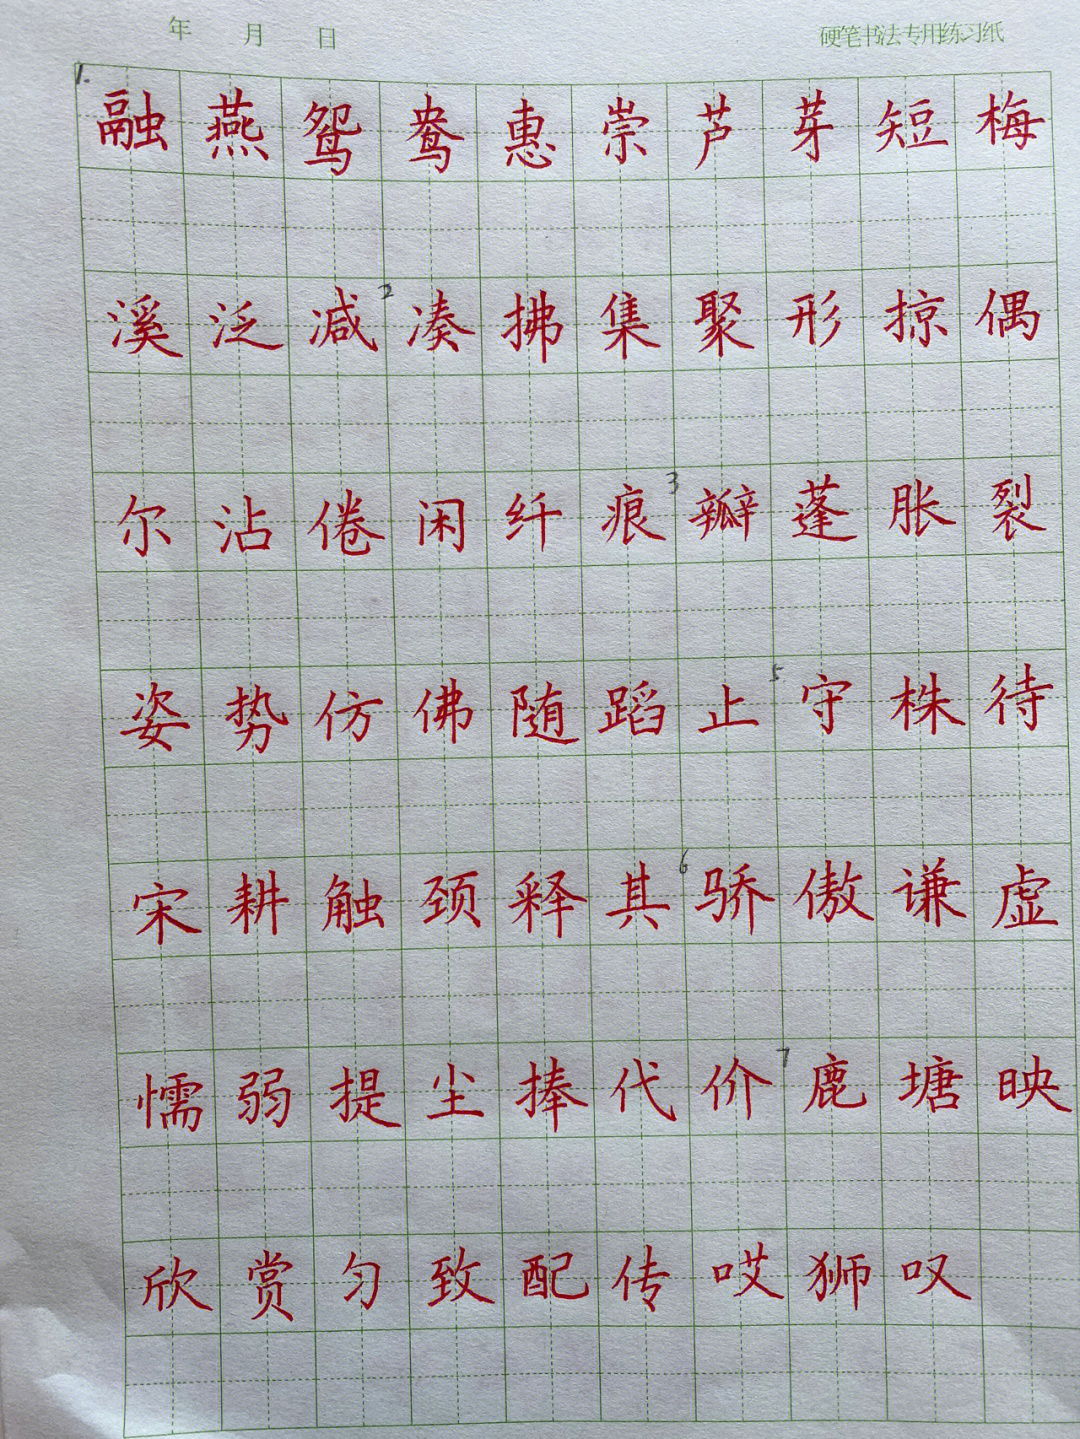 年 月 日 硬笔书法专用练习纸
1. 融燕鸳鸯惠崇芦芽短梅
溪泛减 2 凑拂集聚形掠偶
尔沾倦闲纤痕 3 瓣蓬胀裂
姿势仿佛随蹈止 5 守株待
宋耕触颈释其 6 骄傲谦虚
懦弱提尘捧代价 7 鹿塘映
欣赏匀致配传哎狮叹